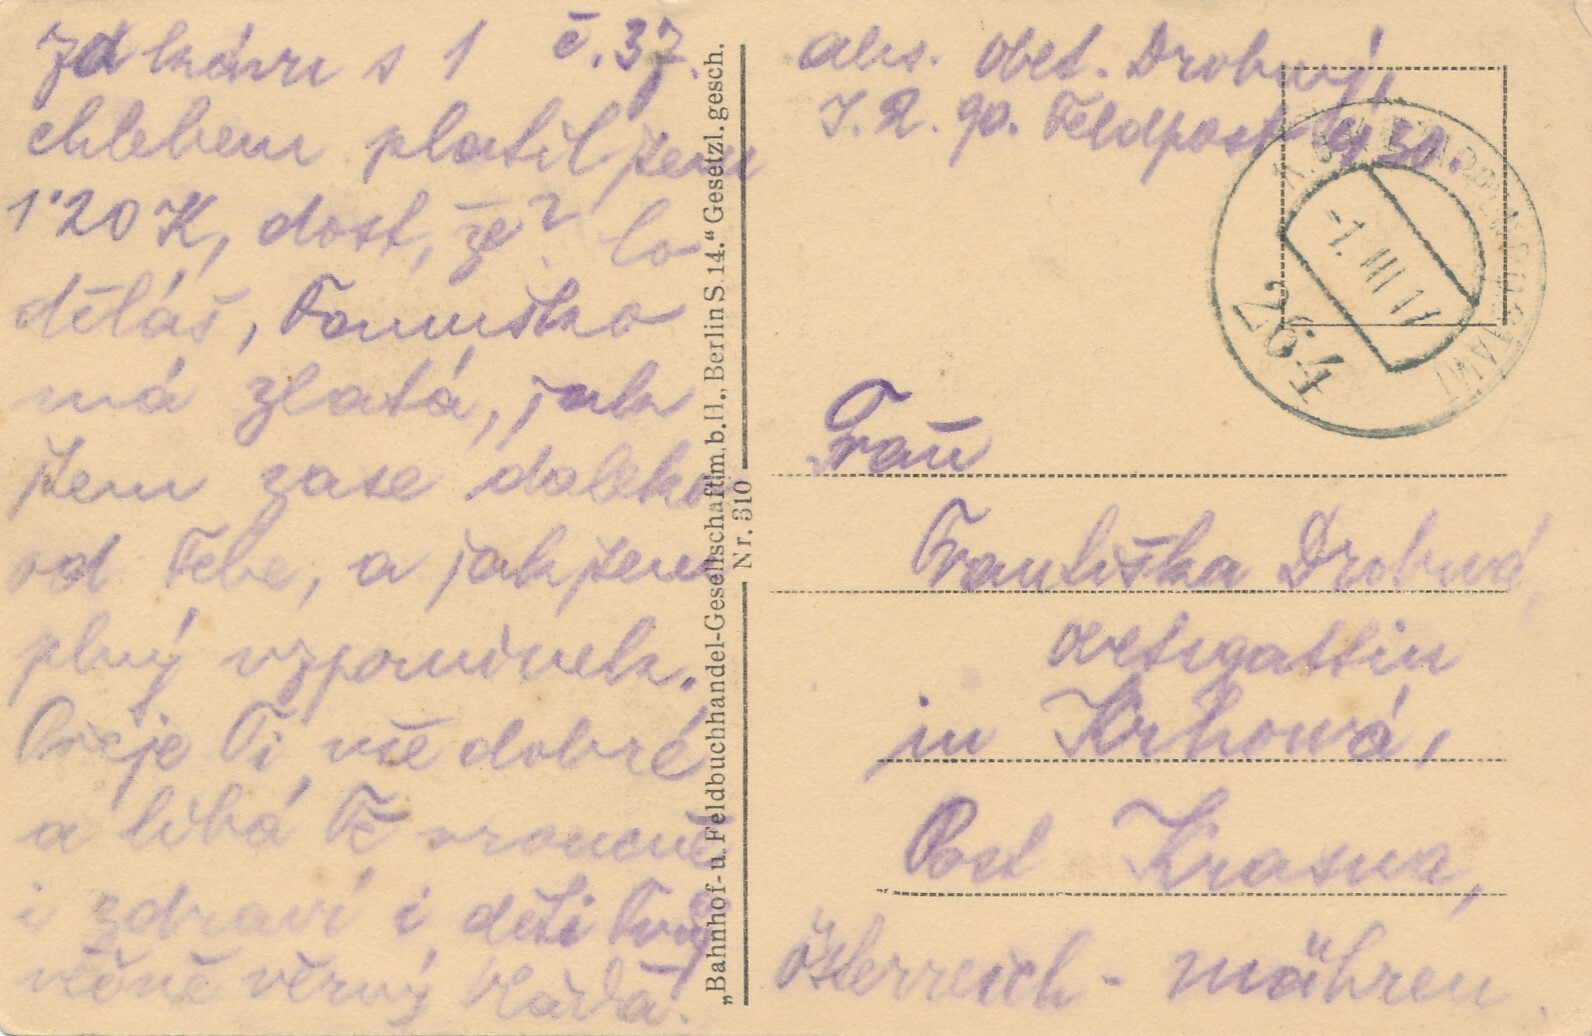 Za kávu s 1 č. 37.
chlebem platil jsem
1·20 K, dost, že? Co
děláš, Fanuško
má zlatá, jak
jsem zase daleko
od Tebe, a jak jsem
plný vzpomínek.
Přeje Ti vše dobré
a líbá Tě vroucně
i zdraví i děti Tvůj
věčně věrný Vláďa.
„Bahnhof- u. Feldbuchhandel-Gesellschaft m. b. H., Berlin S 14.“ Gesetzl. gesch.
Nr. 310
abs. Obet. Drobný,
I. R. 90. Feldpost 30.
-1. III 17
264
Frau
Františka Drobná,
in Krhová,
Post Krasna,
Österreich - Mähren.